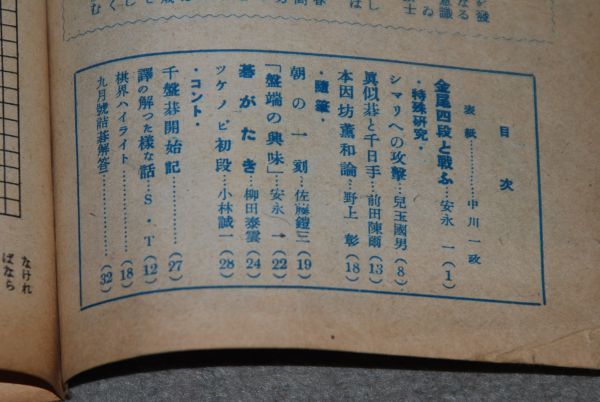 目次
表紙…………中川一政
金尾四段と戦ふ…安永一（1）
・特殊研究・
シマリへの攻撃…兒玉國男（8）
眞似碁と千日手…前田陳爾（13）
本因坊薫和論…野上彰（18）
・随筆・
朝の一刻…佐藤鎧三（19）
「盤端の興味」…安永一（22）
碁がたき…柳田泰雲（24）
ツケノビ初段…小林誠一（28）
・コント・
千盤碁開始記…………（27）
譯の解つた様な話…S・T（12）
棋界ハイライト…………（18）
九月號詰碁解答…………（32）
なけれ
ばなら